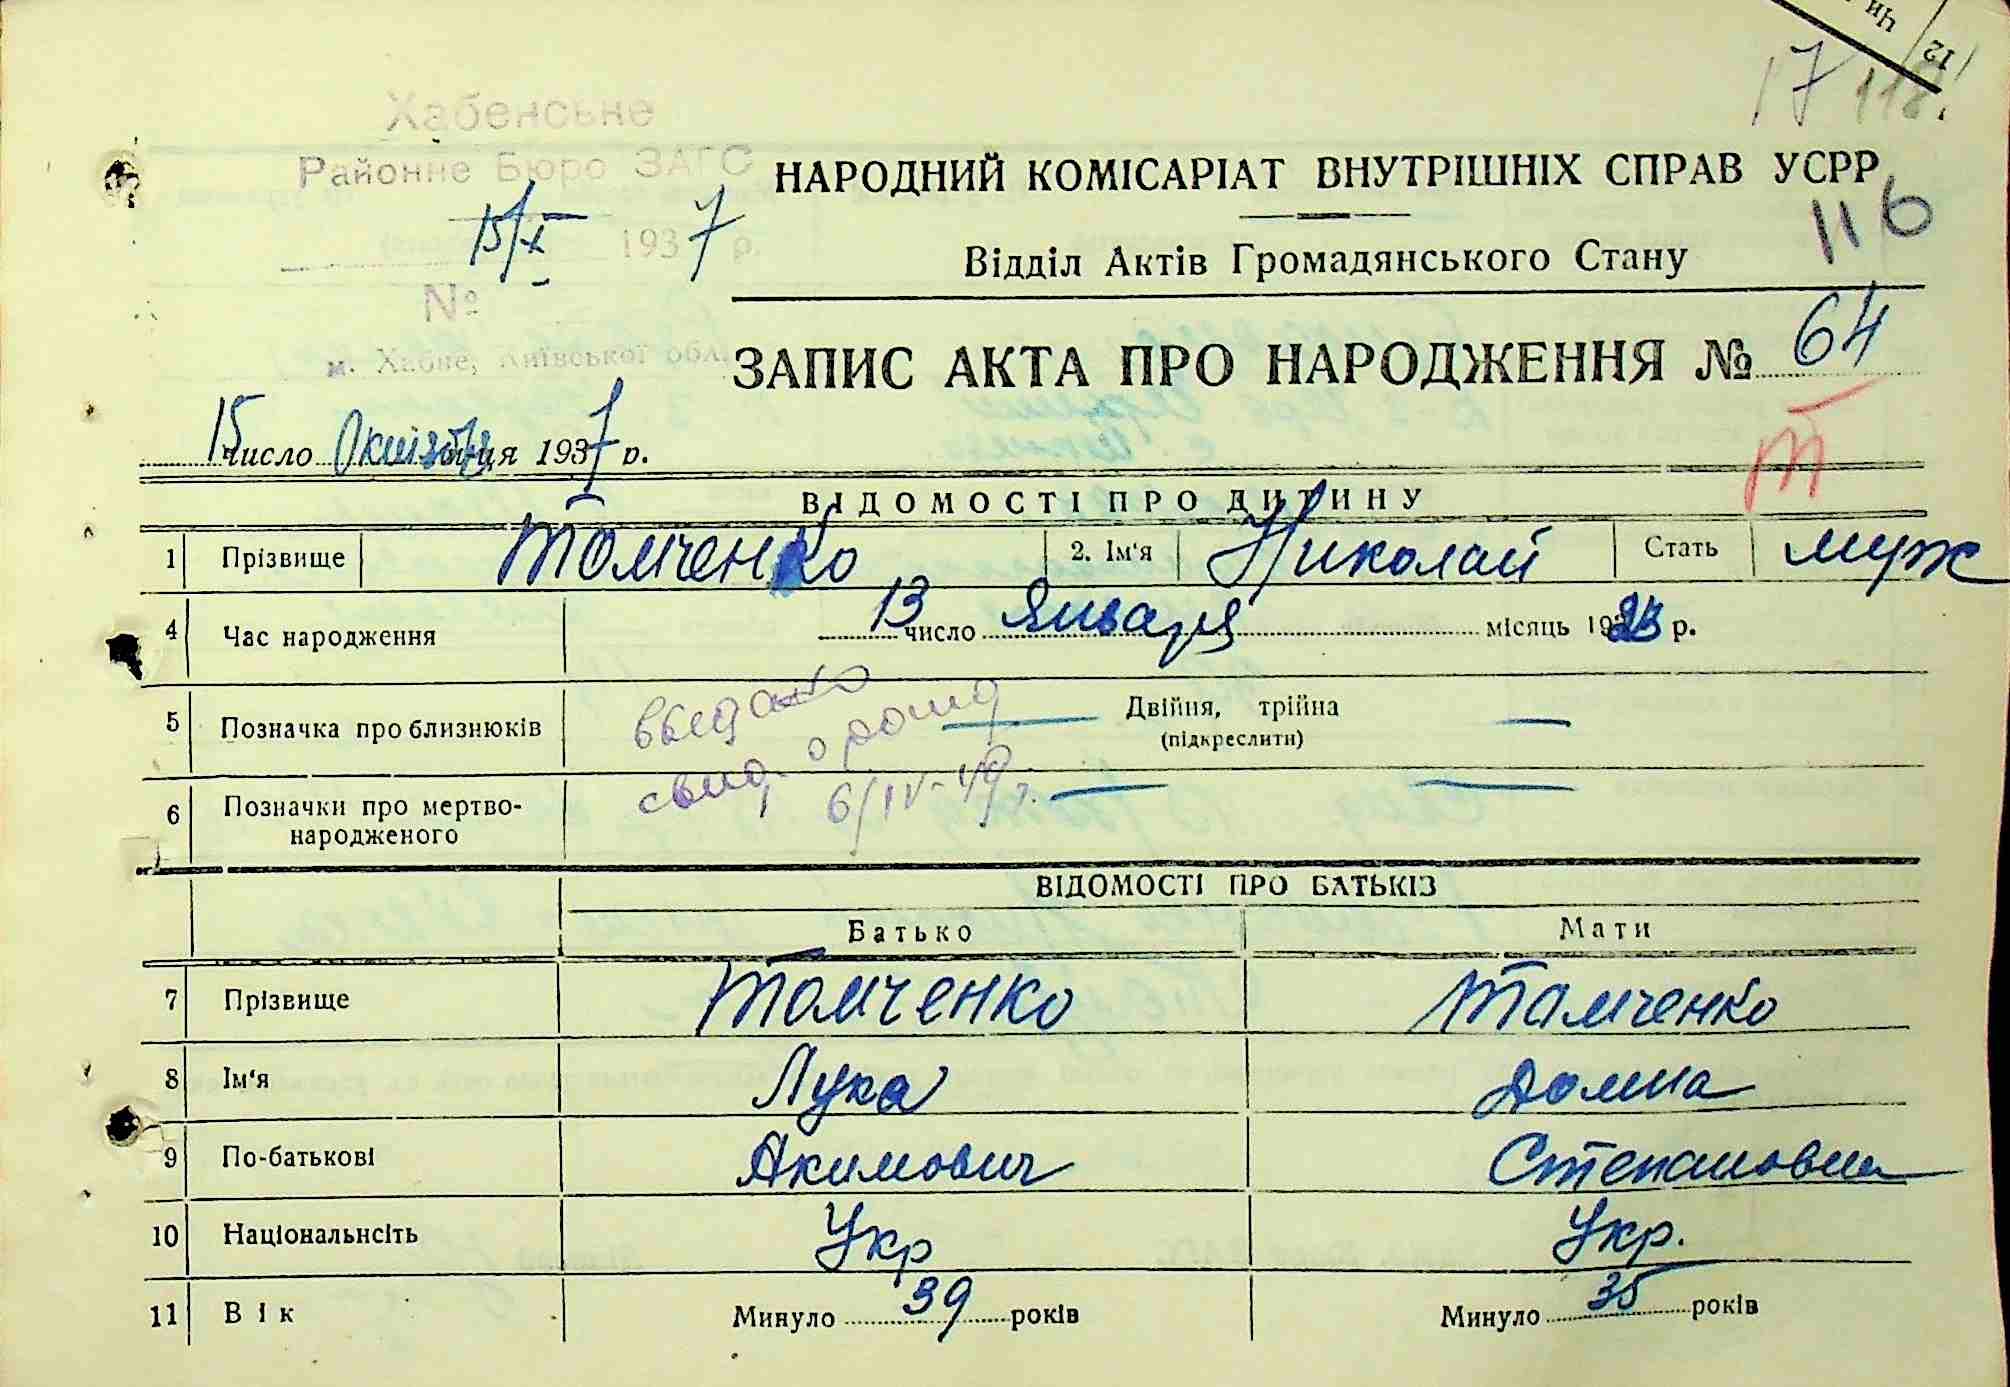 17 118.
Хабенське
Районне Бюро ЗАГС
15/X 1937 р.
№
м. Хабне, Київської обл.
НАРОДНИЙ КОМІСАРІАТ ВНУТРІШНІХ СПРАВ УСРР
116
Відділ Актів Громадянського Стану
ЗАПИС АКТА ПРО НАРОДЖЕННЯ № 64
15 число Октября м-ця 1937 р.
Т
ВІДОМОСТІ ПРО ДИТИНУ
1 Прізвище Томченко 2. Ім'я Николай Стать муж
4 Час народження 13 число Января місяць 1923 р.
5 Позначка про близнюків Двійня, трійна
(підкреслити)
выдано
свид. о рожд
6/IV-49 г.
6 Позначки про мертво-
народженого
ВІДОМОСТІ ПРО БАТЬКІЗ
Батько Мати
7 Прізвище Томченко Томченко
8 Ім'я Лука Домна
9 По-батькові Акимович Степановна
10 Національнсіть Укр Укр.
11 Вік Минуло 39 років Минуло 35 років